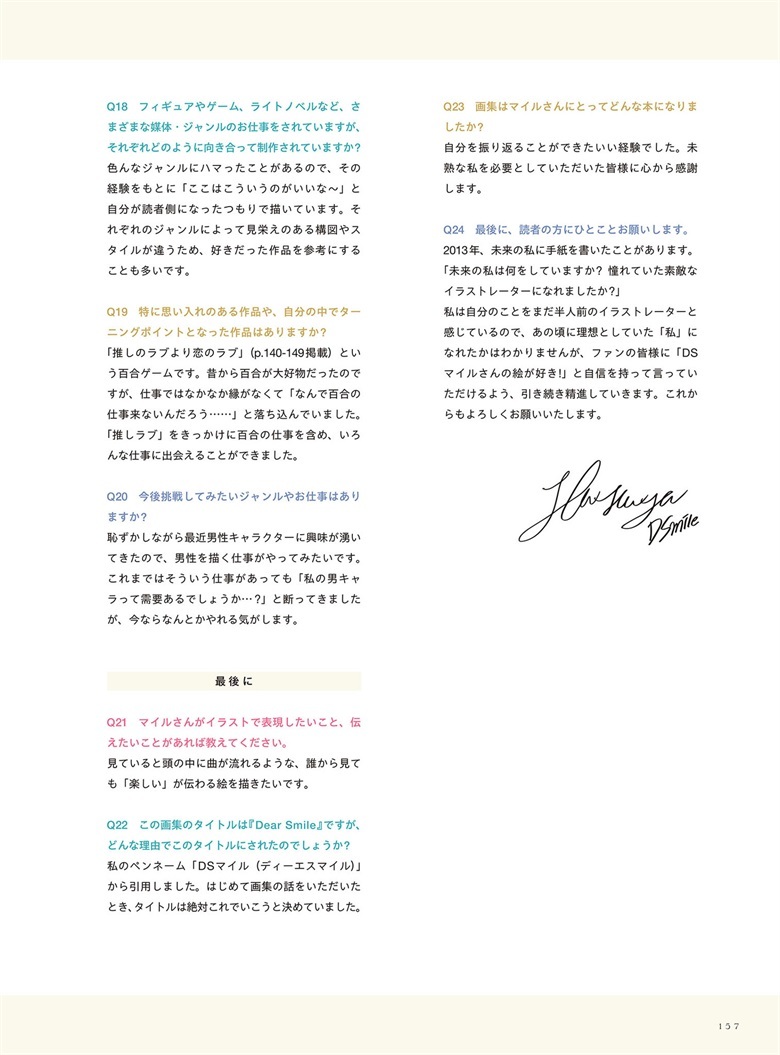 Q18　フィギュアやゲーム、ライトノベルなど、さ
まざまな媒体・ジャンルのお仕事をされていますが、
それぞれどのように向き合って制作されていますか?
色んなジャンルにハマったことがあるので、その
経験をもとに「ここはこういうのがいいな〜」と
自分が読者側になったつもりで描いています。そ
れぞれのジャンルによって見栄えのある構図やス
タイルが違うため、好きだった作品を参考にする
ことも多いです。
Q19　特に思い入れのある作品や、自分の中でター
ニングポイントとなった作品はありますか?
「推しのラブより恋のラブ」（p.140-149掲載）とい
う百合ゲームです。昔から百合が大好物だったので
すが、仕事ではなかなか縁がなくて「なんで百合の
仕事来ないんだろう……」と落ち込んでいました。
「推しラブ」をきっかけに百合の仕事を含め、いろ
んな仕事に出会えることができました。
Q20　今後挑戦してみたいジャンルやお仕事はあり
ますか?
恥ずかしながら最近男性キャラクターに興味が湧い
てきたので、男性を描く仕事がやってみたいです。
これまではそういう仕事があっても「私の男キャ
ラって需要あるでしょうか…?」と断ってきました
が、今ならなんとかやれる気がします。
最後に
Q21　マイルさんがイラストで表現したいこと、伝
えたいことがあれば教えてください。
見ていると頭の中に曲が流れるような、誰から見て
も「楽しい」が伝わる絵を描きたいです。
Q22　この画集のタイトルは『Dear Smile』ですが、
どんな理由でこのタイトルにされたのでしょうか?
私のペンネーム「DSマイル（ディーエスマイル）」
から引用しました。はじめて画集の話をいただいた
とき、タイトルは絶対これでいこうと決めていました。
Q23　画集はマイルさんにとってどんな本になりま
したか?
自分を振り返ることができたいい経験でした。未
熟な私を必要としていただいた皆様に心から感謝
します。
Q24　最後に、読者の方にひとことお願いします。
2013年、未来の私に手紙を書いたことがあります。
「未来の私は何をしていますか? 憧れていた素敵な
イラストレーターになれましたか?」
私は自分のことをまだ半人前のイラストレーターと
感じているので、あの頃に理想としていた「私」に
なれたかはわかりませんが、ファンの皆様に「DS
マイルさんの絵が好き!」と自信を持って言ってい
ただけるよう、引き続き精進していきます。これか
らもよろしくお願いいたします。
DSmile
157